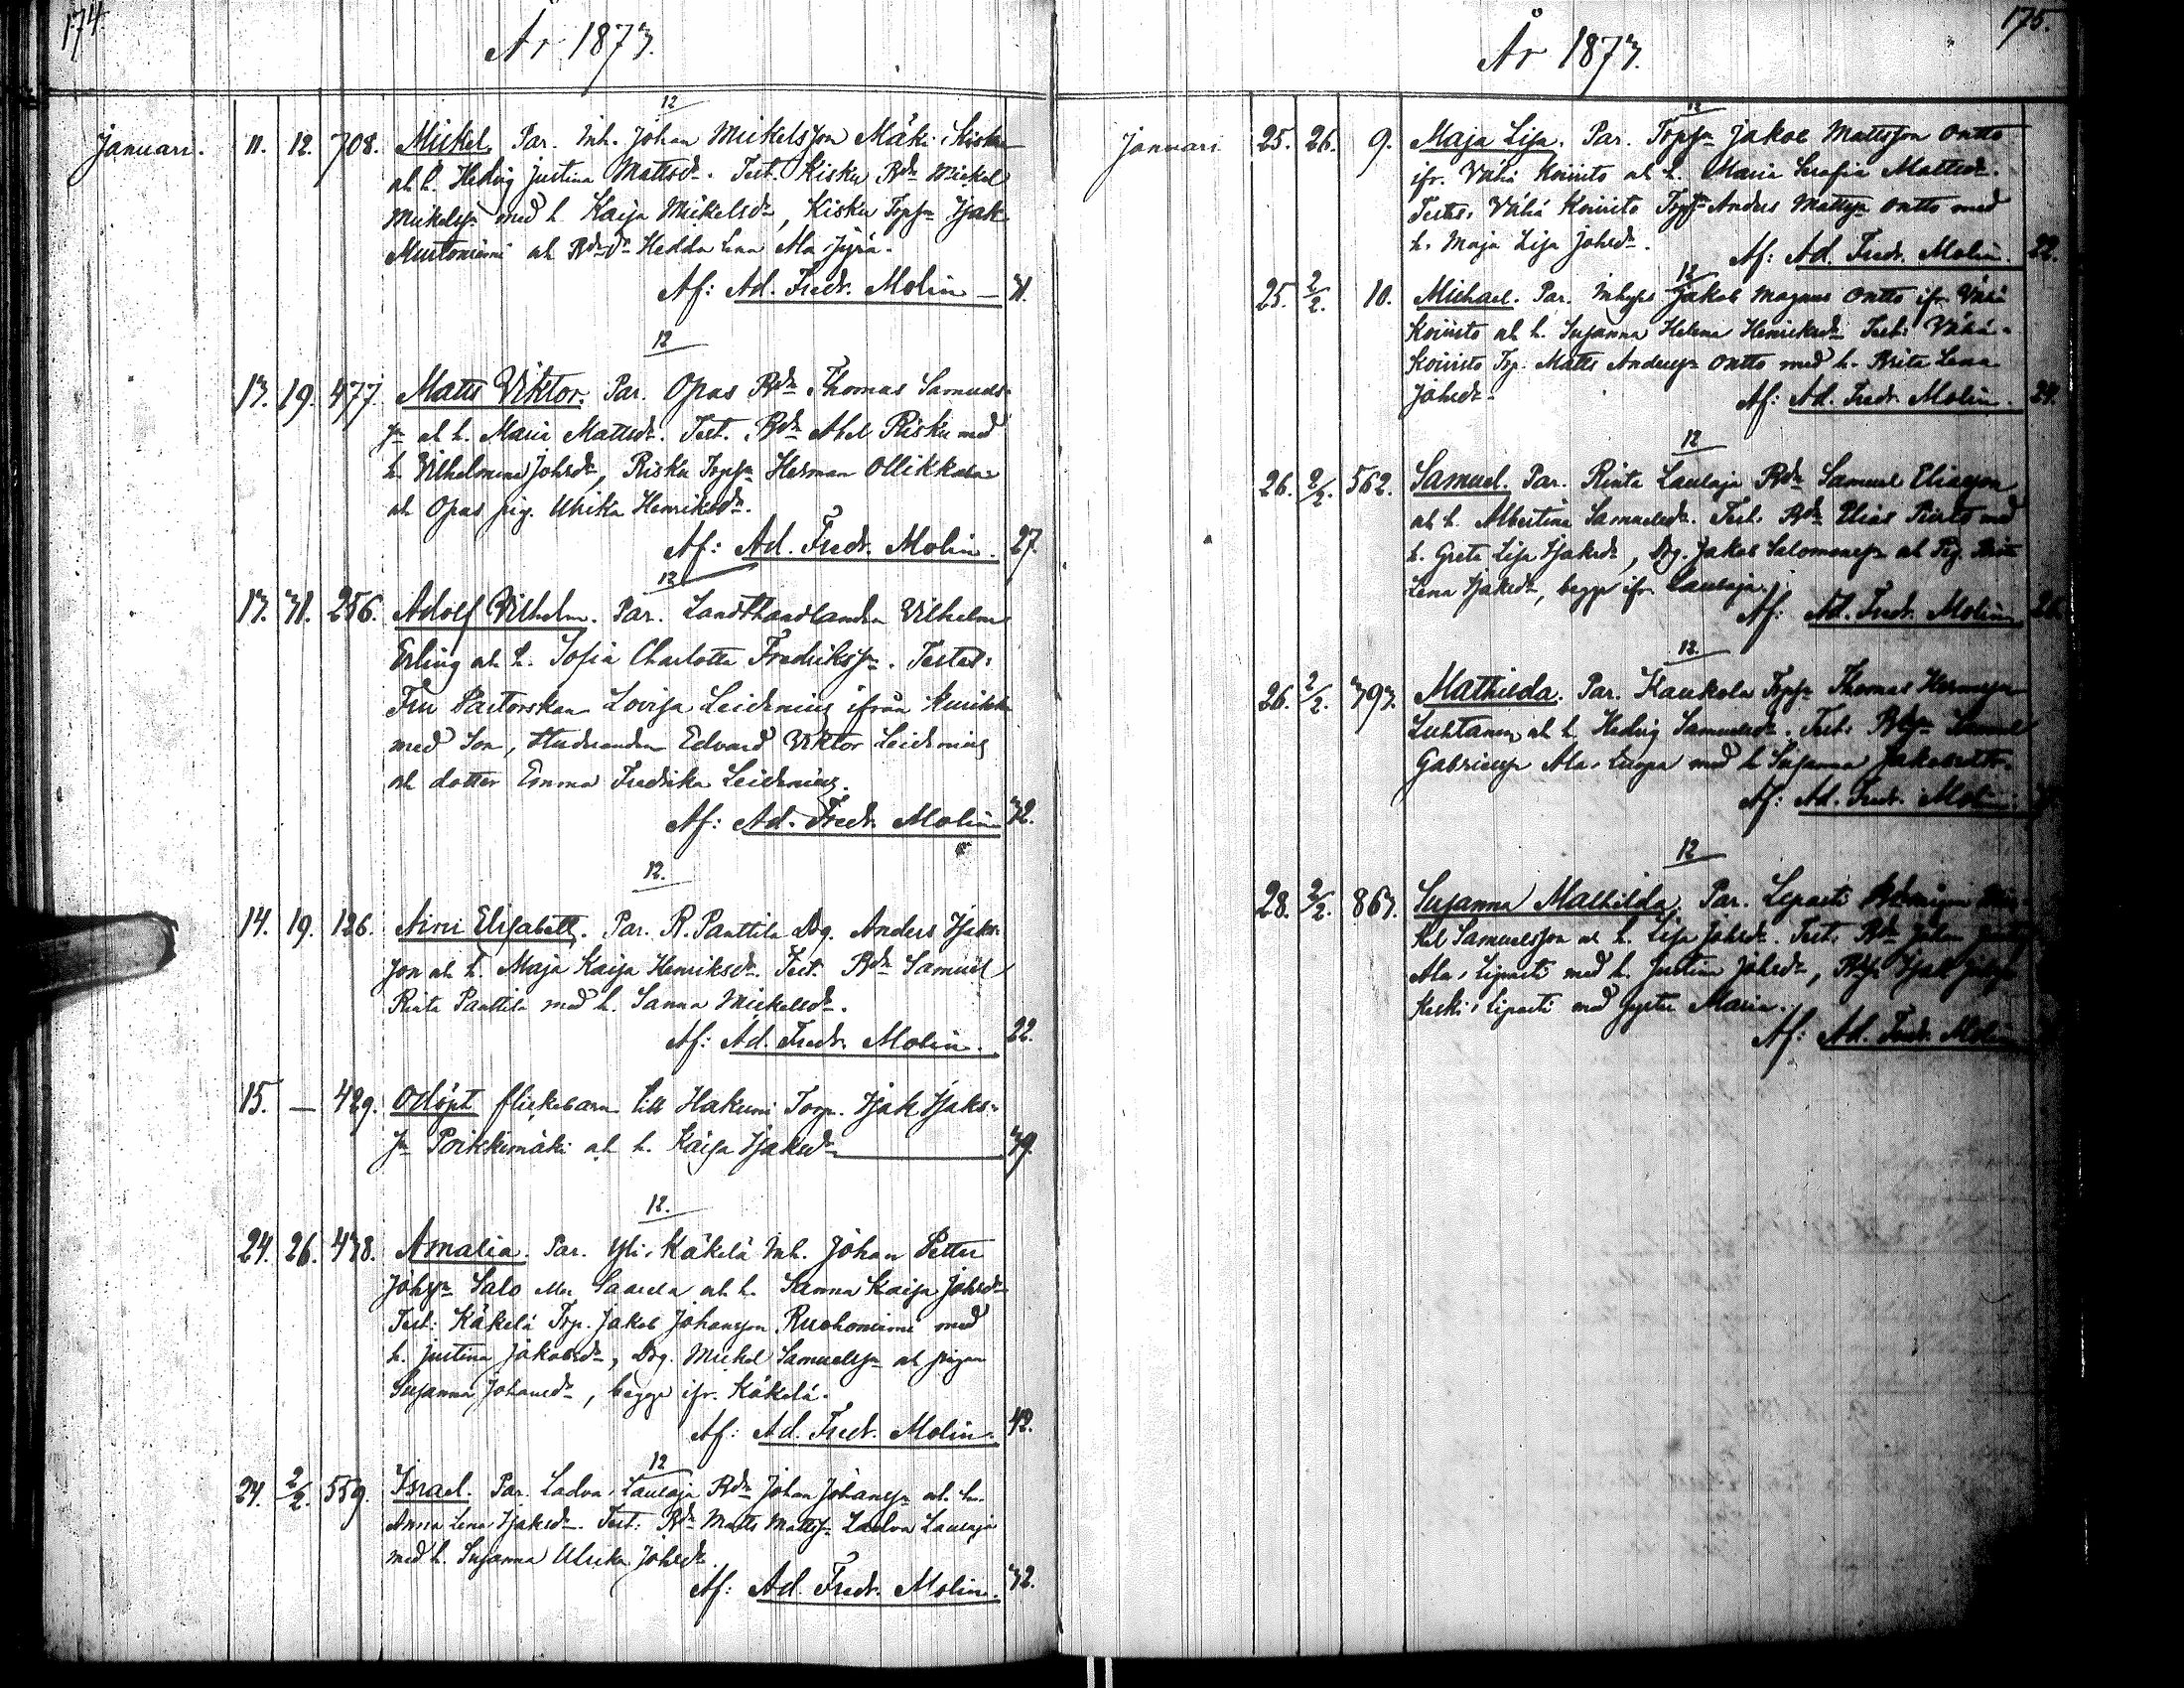 174.
År 1873.
12
Januari. 11. 12. 708. Mickel. Par. Inh. Johan Mickelsson Mäki i Kisku
och h. Hedvig Justina Mattsdr. Test. Kisku Bdn Mickel
Mickelsn med h. Kaisa Mickelsdr, Kisku Torpn Isak
Mustoniemi och Bdr dr Hedda Lena Ala Jyrä.
Af: Ad. Fredr. Molin — 31.
12
13. 19. 477. Matts Viktor. Par. Opas Bdn Thomas Samuels-
sn och h. Maria Mattsdr. Test. Bdn Abel Risku med
h. Vilhelmina Johsdr, Risku Torpn Herman Ollikkala
och Opas pig. Ulrika Henriksdr.
Af: Ad. Fredr. Molin. 27.
12
13. 31. 256. Adolf Vilhelm. Par. Landthandlanden Vilhelm
Erling och h. Sofia Charlotta Fredrikssn. Testes:
Fru Pastorskan Lovisa Leidenius ifrån Kurikka
med Son, Studeranden Edvard Viktor Leidenius
och dotter Emma Fredrika Leidenius.
Af: Ad. Fredr. Molin 32.
12.
14. 19. 126. Aini Elisabeth. Par. R. Panttila Drg. Anders Isaks-
son och h. Maja Kaisa Henriksdr. Test. Bdn Samuel
Rinta Panttila med h. Sanna Mickelsdr.
Af: Ad. Fredr. Molin. 22.
15. — 429. Odöpt flickebarn till Hakuni Torp. Isak Isaks-
sn Poikkimäki och h. Kaisa Isaksdr 39.
12.
24. 26. 438. Amalia. Par. Yli-Käkelä Inh. Johan Petter
Johsn Salo eller Saarela och h. Sanna Kaisa Johsdr
Test: Käkelä Trp. Jakob Johansson Ruohoniemi med
h. Justina Jakobsdr, Drg. Mickel Samuelsn och pigan
Susanna Johansdr, begge ifr. Käkelä.
Af: Ad. Fredr. Molin. 42.
12
24. 2/2. 559. Israel. Par. Ladva Laulaja Bdn Johan Johansn och h.
Anna Lena Isaksdr. Test: Bdn Matts Mattsn Ladva Laulaja
med h. Susanna Ulrika Johsdr.
Af: Ad. Fredr. Molin. 32.
175.
År 1873.
12
Januari 25. 26. 9. Maja Lisa. Par. Torpn Jakob Mattsson Ontto
ifr. Vähä Koivisto och h. Maria Serafia Mattsdr.
Testes: Vähä Koivisto Torpn Anders Mattsn Ontto med
h. Maja Lisa Johsdr.
Af: Ad. Fredr. Molin. 22.
12
25. 2/2. 10. Michael. Par. Inhyses Jakob Magnus Ontto ifr. Vähä
Koivisto och h. Susanna Helena Henriksdr. Test: Vähä-
Koivisto Trp. Matts Andersn Ontto med h. Brita Lena
Johsdr.
Af: Ad. Fredr. Molin. 24.
12
26. 2/2. 562. Samuel. Par. Rinta Laulaja Bdn Samuel Eliasson
och h. Albertina Samuelsdr. Test: Bdn Elias med
h. Greta Lisa Isaksdr, Drg. Jakob Salomonsn och Pig.
Lena Isaksdr, begge ifr. Laulaja.
Af: Ad. Fredr. Molin 26.
12.
26. 2/2. 393. Mathilda. Par. Kaukola Torpn Thomas Hermansn
Luhtanen och h. Hedvig Samuelsdr. Test: Samuel
Gabrielsn Ala Luopa med h. Susanna Jakobsdtr.
Af: Ad. Fredr. Molin.
12
28. 2/2. 863. Susanna Mathilda. Par. Lepasti
kel Samuelsson och h. Lisa Johsdr. Test: Bdn Johan
Ala Lipasti med h. Justina Johsdr, Isak
Keski Lipasti med syster Maria.
Af: Ad. Fredr. Molin